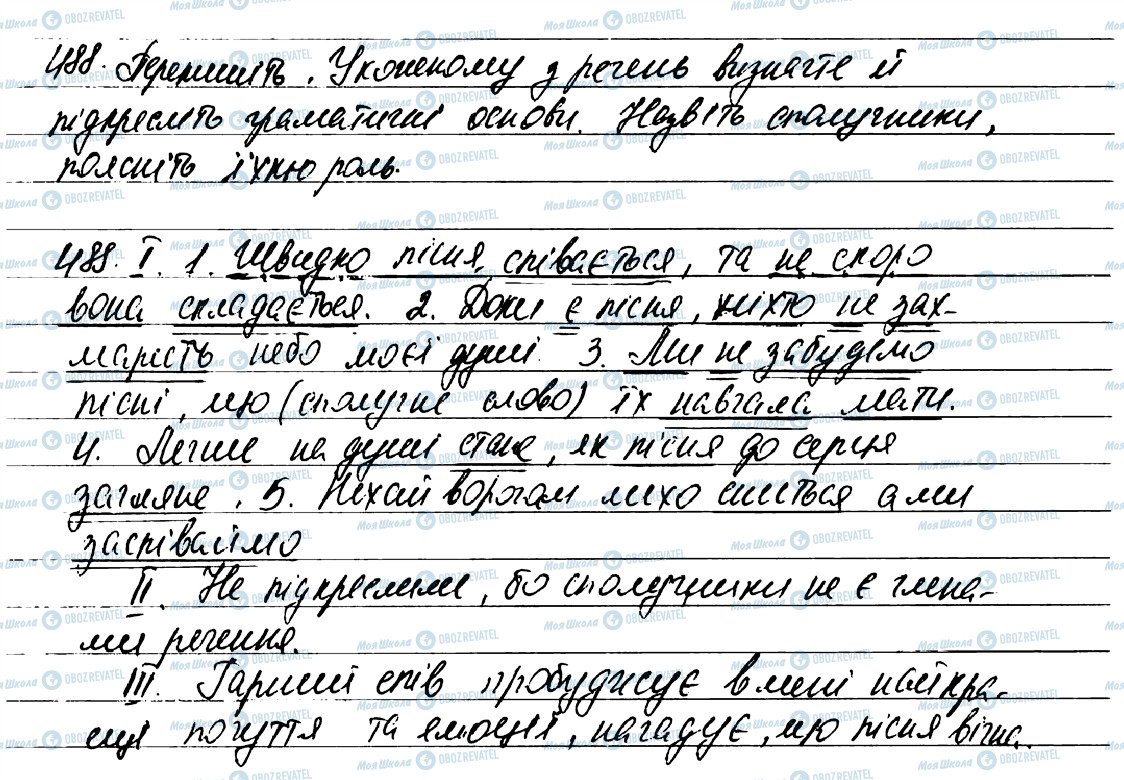 488. Перепишіть. У кожному з речень визначте й
підкресліть граматичні основи. Назвіть сполучники,
поясніть їхню роль.
488. I. 1. Швидко пісня співається, та не скоро
вона складається. 2. Доки є пісня, ніхто не зах-
марить небо моєї душі. 3. Ми не забудемо
пісні, що (сполучне слово) їх навчала мати.
4. Легше на душі стане, як пісня до серця
загляне. 5. Нехай ворогам лихо сниться а ми
заспіваймо
II. Не підкреслили, бо сполучники не є члена-
ми речення.
III. Гарний спів пробуджує в мені найкра-
щі почуття та емоції, нагадує, що пісня вічна.